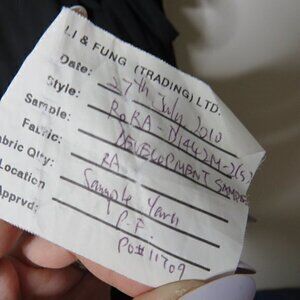 LI & FUNG (TRADING) LTD.
Date: 27th July 2010
Style: RORA-N1442M-2(S)
Sample: DEVELOPMENT SAMPLE
Fabric: RA
Fabric Qlty: Sample Yarn
Location P.F.
Apprvd: PO#11709